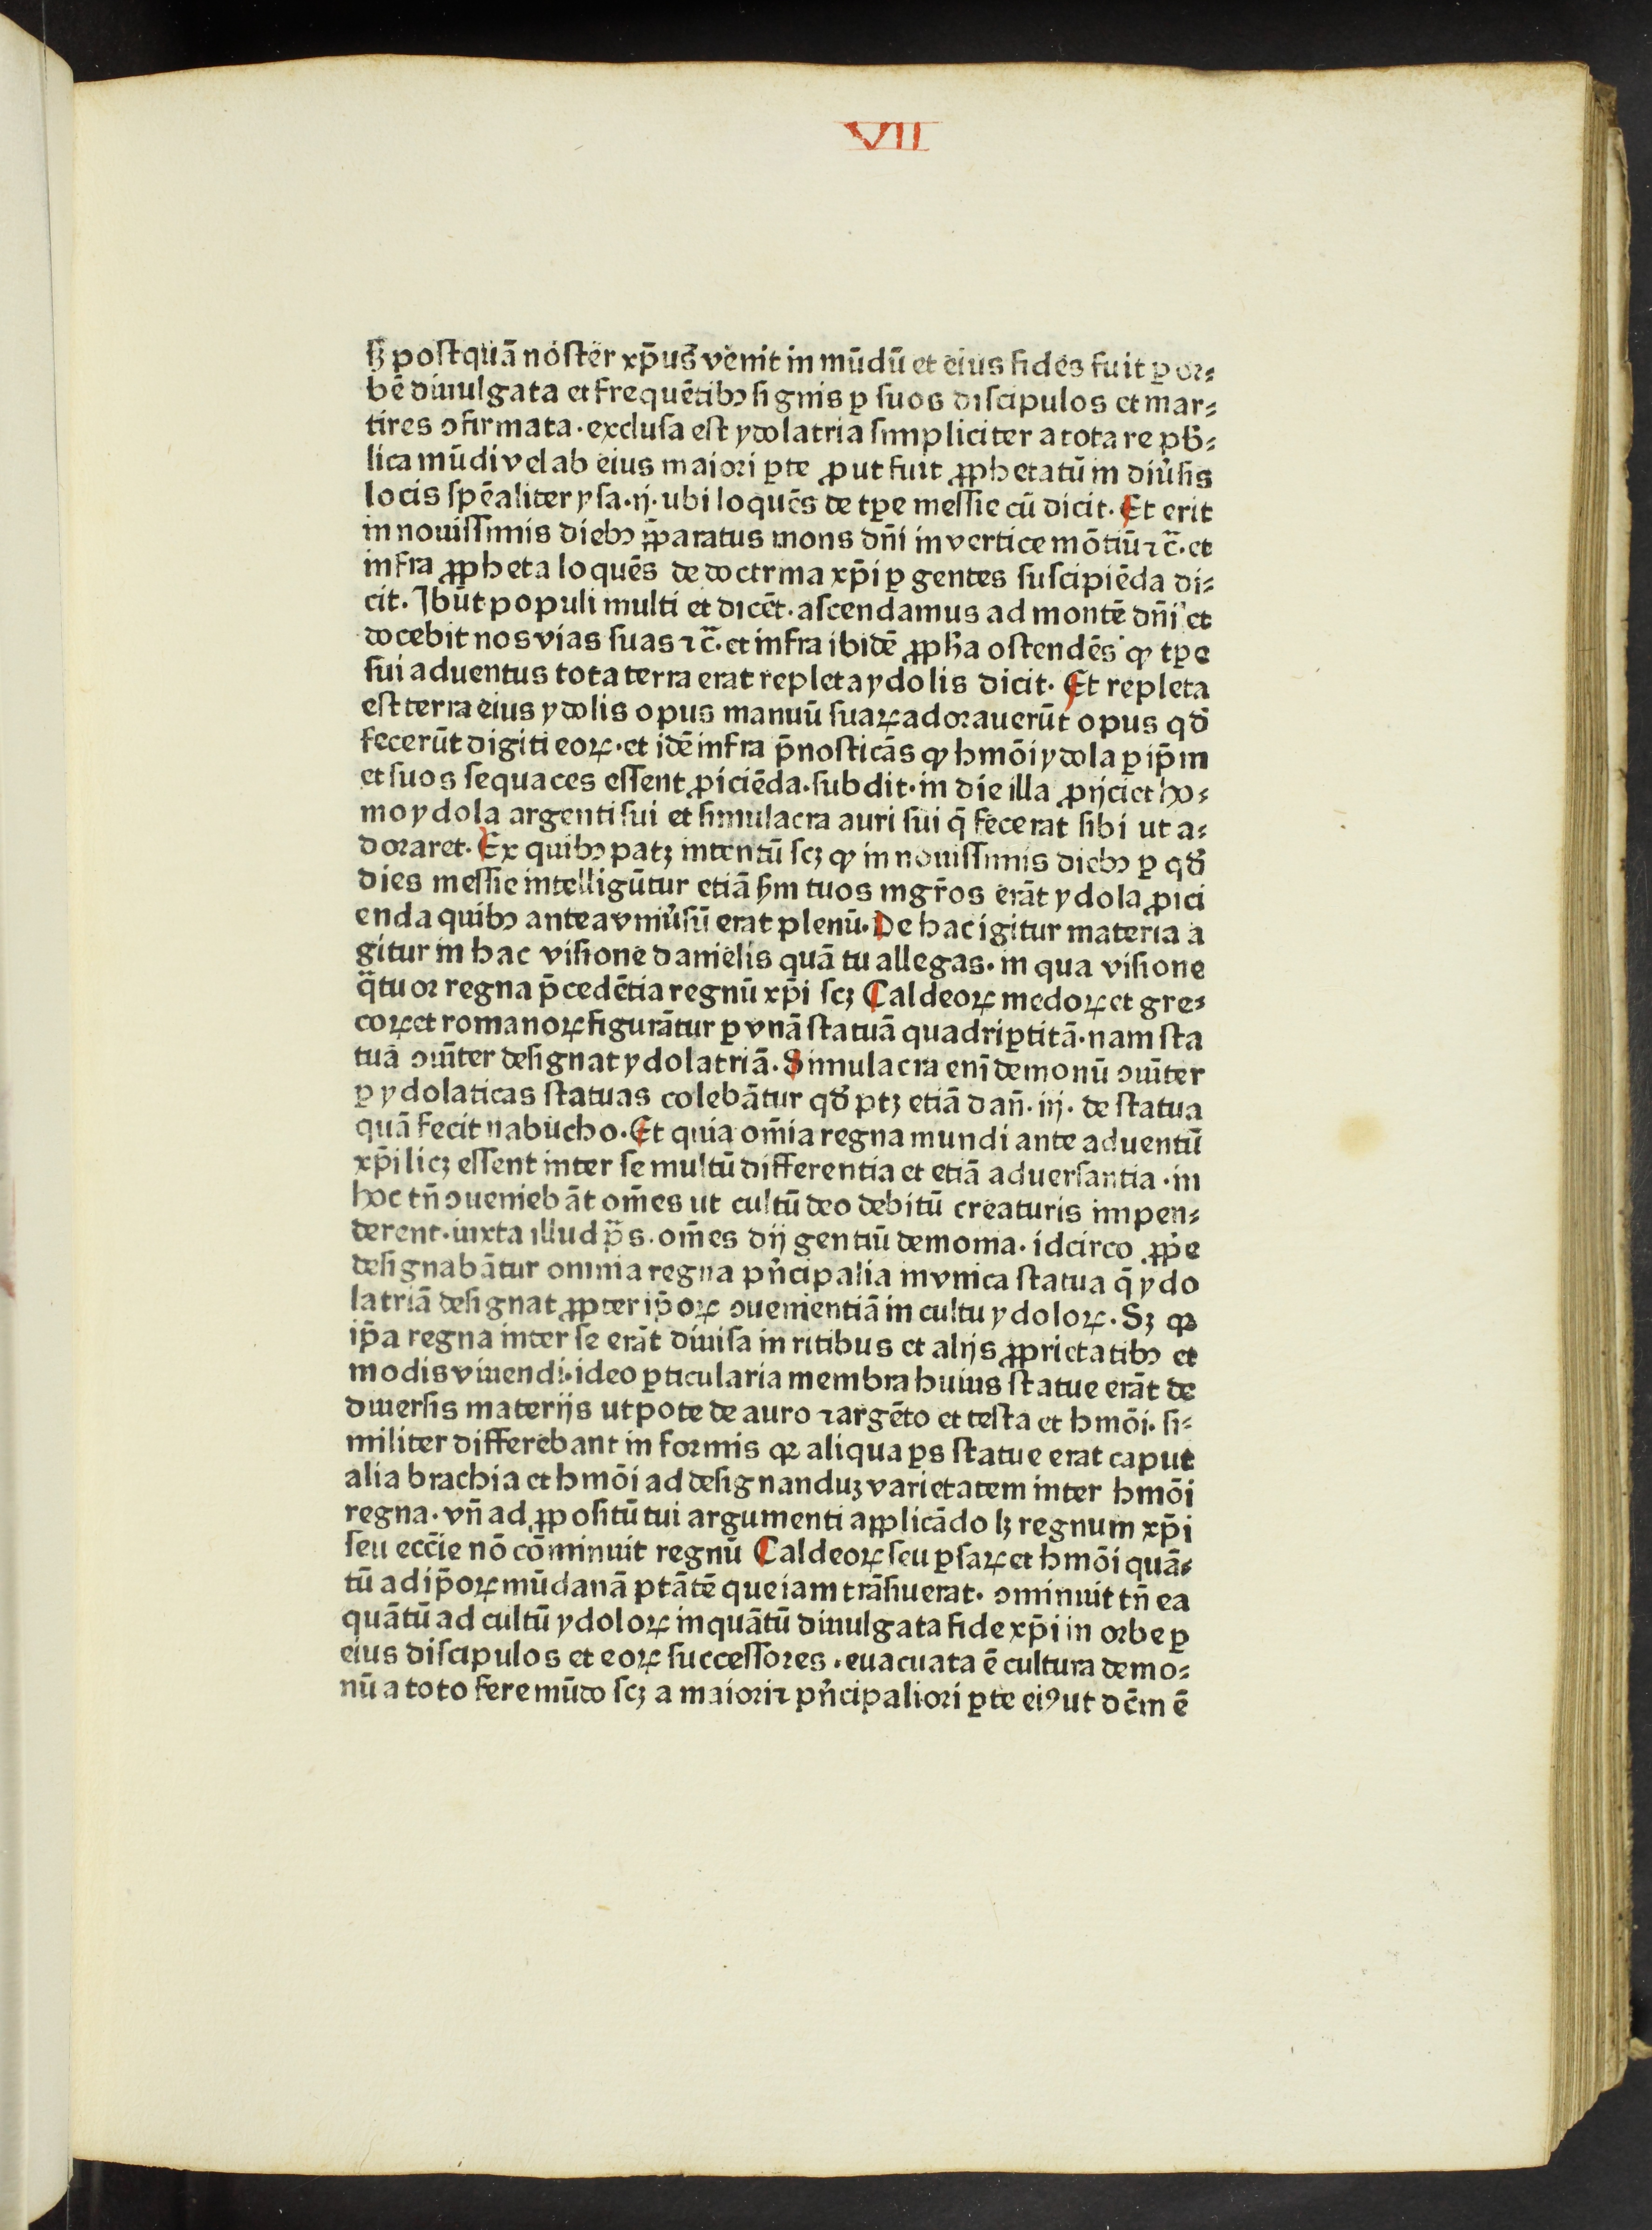 VII
sꝫ postquā noster xp̄us venit in mūdū et eius fides fuit ꝑ or⸗
bē diuulgata et frequētibꝫ signis ꝑ suos discipulos et mar⸗
tires ꝯfirmata · exclusa est ydolatria simpliciter a tota re pb̄⸗
lica mūdi vel ab eius maiori ꝑte ꝓut fuit ꝓphetatū in diu̓sis
locis sp̄ealiter ysa · ij · ubi loquēs de tꝑe messie cū dicit · Et erit
in nouissimis diebꝫ p̄paratus mons dn̄i in vertice mōtiū ⁊ c̄ · et
infra ꝓpheta loquēs de doctrina xp̄i ꝑ gentes suscipiēda di⸗
cit · Ibūt populi multi et dicēt · ascendamus ad montē dn̄i et
docebit nos vias suas ⁊ c̄ · et infra ibidē ꝓph̄a ostendēs ꝙ tꝑe
sui aduentus tota terra erat repleta ydolis dicit · Et repleta
est terra eius ydolis opus manuū suaꝝ adorauerūt opus qd̄
fecerūt digiti eoꝝ · et idē infra p̄nosticās ꝙ hmōi ydola ꝑ ip̄m
et suos sequaces essent ꝓiciēda · subdit · in die illa ꝓijciet ho⸗
mo ydola argenti sui et simulacra auri sui q̄ fecerat sibi ut a⸗
doraret · Ex quibꝫ patꝫ intentū scꝫ ꝙ in nouissimis diebꝫ ꝑ qd̄
dies messie intelligūtur etiā sm̄ tuos mgr̄os erāt ydola ꝓici
enda quibꝫ antea vniu̓sū erat plenū · De hac igitur materia a
gitur in hac visione danielis quā tu allegas · in qua visione
q̄tuor regna p̄cedētia regnū xp̄i scꝫ Caldeoꝝ medoꝝ et gre⸗
coꝝ et romanoꝝ figurātur ꝑ vnā statuā quadriꝑtitā · nam sta
tuā ꝯīter designat ydolatriā · Simulacra enī demonū ꝯīter
ꝑ ydolaticas statuas colebātur qd̄ ptꝫ etiā dan̄ · iij · de statua
quā fecit nabucho · Et quia om̄ia regna mundi ante aduentū
xp̄i licꝫ essent inter se multū differentia et etiā aduersantia · in
hoc tn̄ ꝯueniebāt om̄es ut cultū deo debitū creaturis impen⸗
derent · iuxta illud p̄s · om̄es dij gentiū demonia · idcirco ꝓp̓e
designabātur omnia regna pn̓cipalia in vnica statua q̄ ydo
latriā designat ꝓpter ip̄oꝝ ꝯuenientiā in cultu ydoloꝝ · Sꝫ qꝛ
ip̄a regna inter se erāt diuisa in ritibus et alijs ꝓprietatibꝫ et
modis viuendi · ideo ꝑticularia membra huius statue erāt de
diuersis materijs utpote de auro ⁊ argēto et testa et hmōi · si⸗
militer differebant in formis qꝛ aliqua ꝑs statue erat caput
alia brachia et hmōi ad designanduꝫ varietatem inter hmōi
regna · vn̄ ad ꝓpositū tui argumenti applicādo lꝫ regnum xp̄i
seu ecc̄ie nō cōminuit regnū Caldeoꝝ seu ꝑsaꝝ et hmōi quā⸗
tū ad ip̄oꝝ mūdanā ptātē que iam trāsiuerat · ꝯminuit tn̄ ea
quātū ad cultū ydoloꝝ inquātū diuulgata fide xp̄i in orbe ꝑ
eius discipulos et eoꝝ successores · euacuata ē cultura demo⸗
nū a toto fere mūdo scꝫ a maiori ⁊ pn̓cipaliori ꝑte eiꝰ ut dc̄m ē